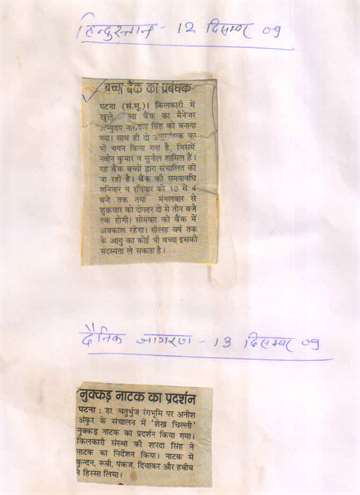 हिन्दुस्तान - 12 दिसम्बर 09
बच्चा बैंक का प्रबंधक
पटना (सं.सू.)। किलकारी में
खुले बैंक का मैनेजर
सिंह को बनाया
गया। साथ ही दो का
भी चयन किया गया है, जिसमें
नवीन कुमार व सुनील शामिल हैं।
यह बैंक बच्चों द्वारा संचालित की
जा रही है। बैंक की समयावधि
शनिवार व रविवार को 10 से 4
बजे तक तथा मंगलवार से
शुक्रवार को दोपहर दो से तीन बजे
तक होगी। सोमवार को बैंक में
अवकाश रहेगा। सोलह वर्ष तक
के आयु का कोई भी बच्चा इसकी
सदस्यता ले सकता है।
दैनिक जागरण - 13 दिसम्बर 09
नुक्कड़ नाटक का प्रदर्शन
पटना : डा. चतुर्भुज रंगभूमि पर अनीश
अंकुर के संचालन में 'शेख चिल्ली'
नुक्कड़ नाटक का प्रदर्शन किया गया।
किलकारी संस्था की शारदा सिंह ने
नाटक का निर्देशन किया। नाटक में
कुन्दन, रूबी, पंकज, दिवाकर और हबीब
ने हिस्सा लिया।